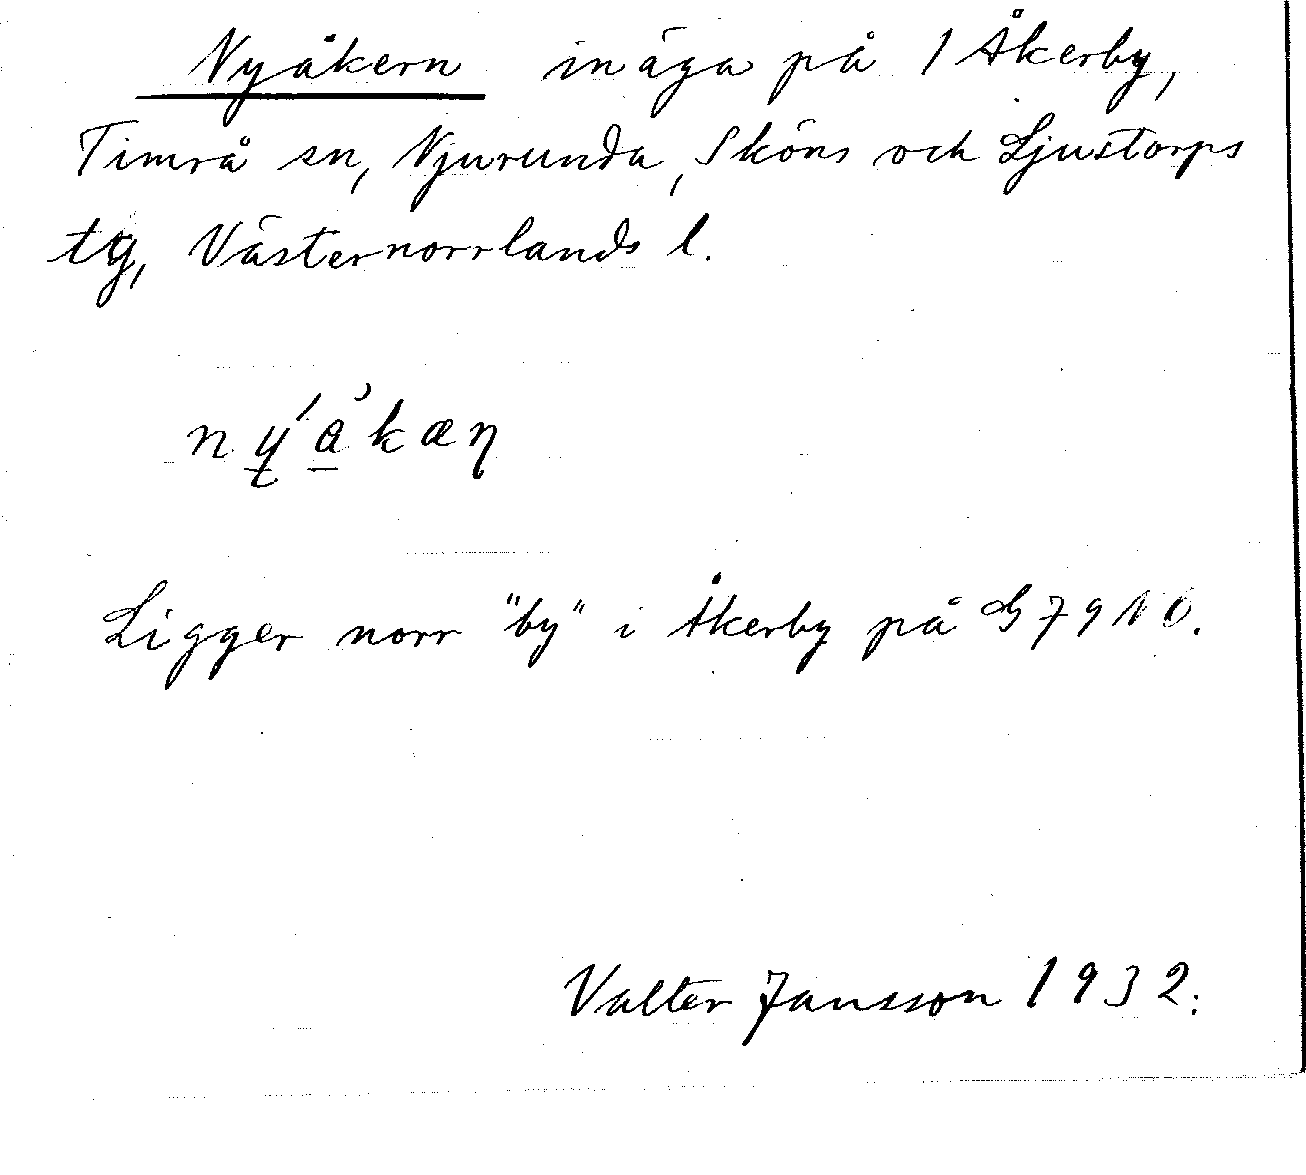 Nyåkern inäga på 1 Åkerby,
Timrå sn, Njurunda, Sköns och Ljustorps
tg, Västernorrlands l.
Ligger norr "by" i Åkerby på G 79 NO.
Valter Jansson 1932.